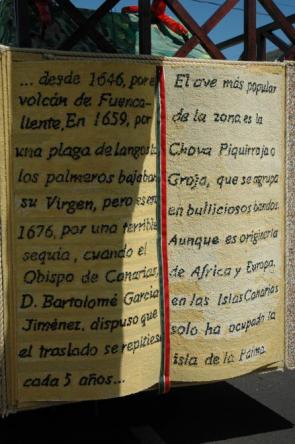 ... desde 1646, por el
volcán de Fuenca-
liente, En 1659, por
una plaga de langosta
los palmeros bajaban
su Virgen, pero es en
1676, por una terrible
sequia, cuando el
Obispo de Canarias,
D. Bartolomé García
Jiménez, dispuso que
el traslado se repitiese
cada 5 años...
El ave más popular
de la zona es la
Chova Piquirroja o
Graja, que se agrupa
en bulliciosos bandos.
Aunque es originaria
de Africa y Europa,
en las Islas Canarias
solo ha ocupado la
isla de la Palma.